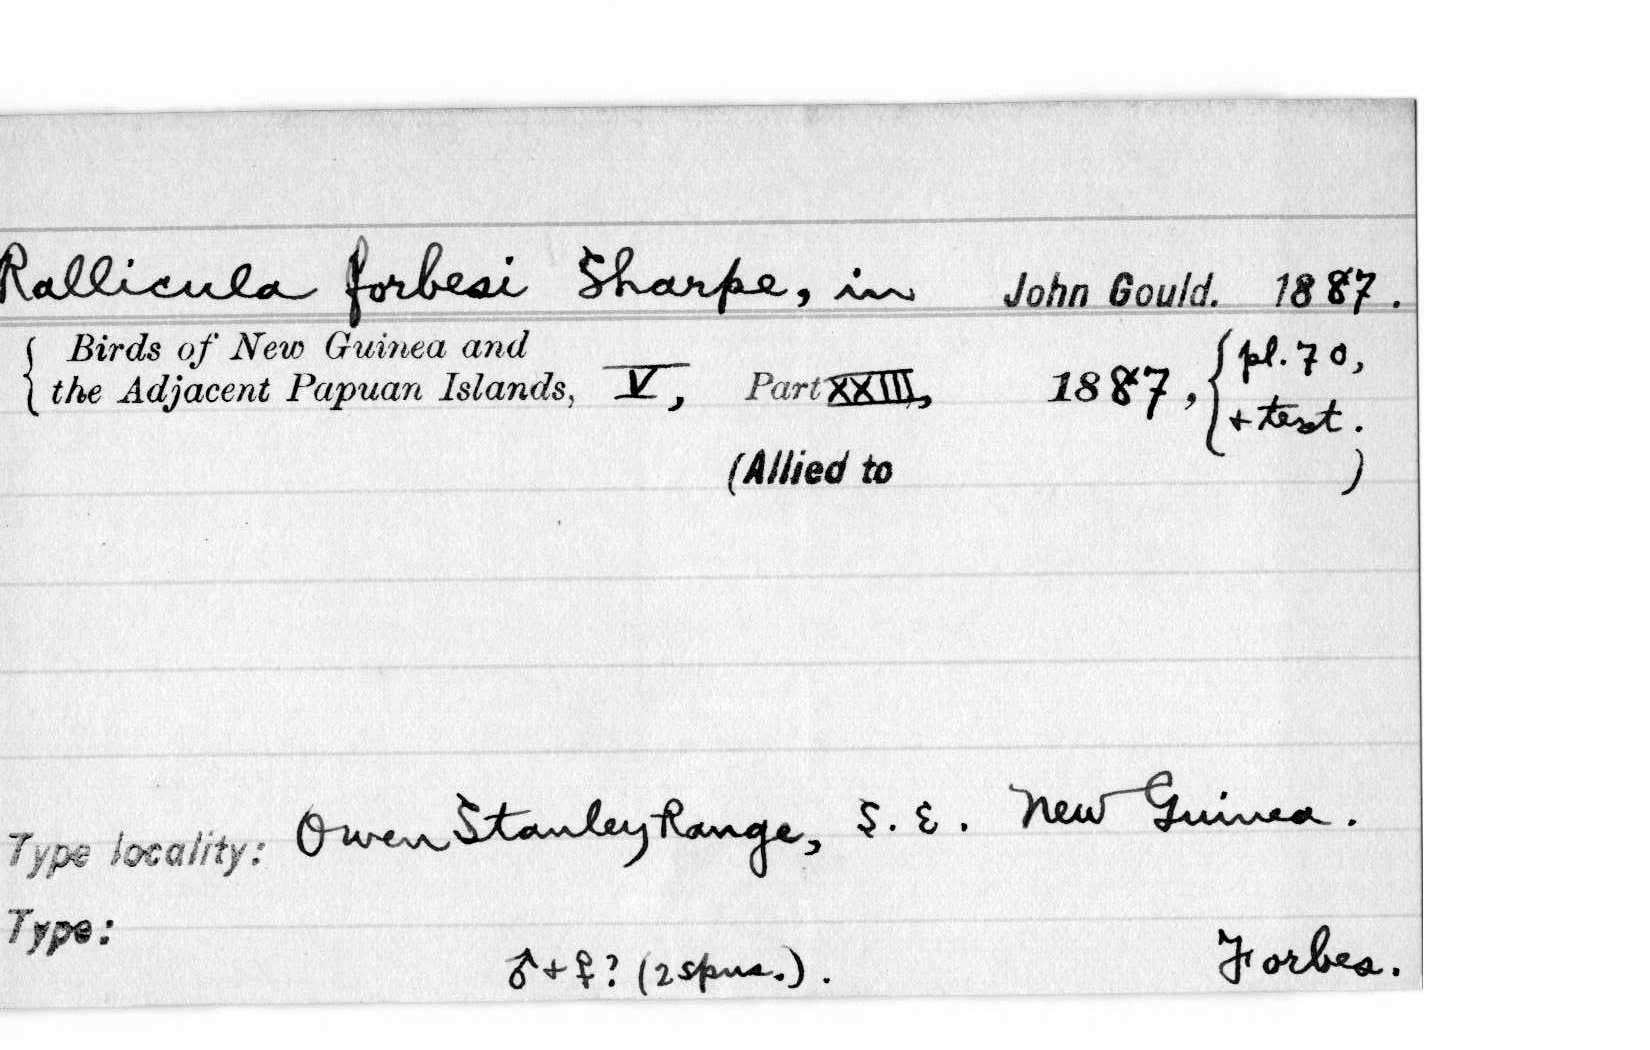 Rallicula forbesi Sharpe, in John Gould. 1887.
{ Birds of New Guinea and
the Adjacent Papuan Islands, V, Part XXIII, 1887, { pl. 70,
+ text.
(Allied to )
Type locality: Owen Stanley Range, S. E. New Guinea.
Type:
♂ + ♀? (2 spns.). Forbes.